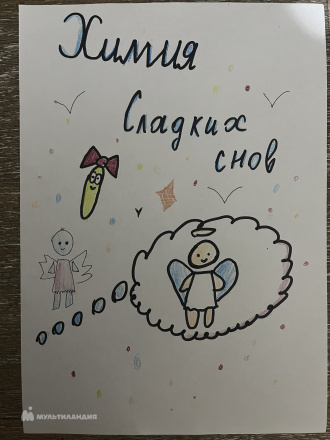 Химия
Сладких
снов
МУЛЬТИЛАНДИЯ